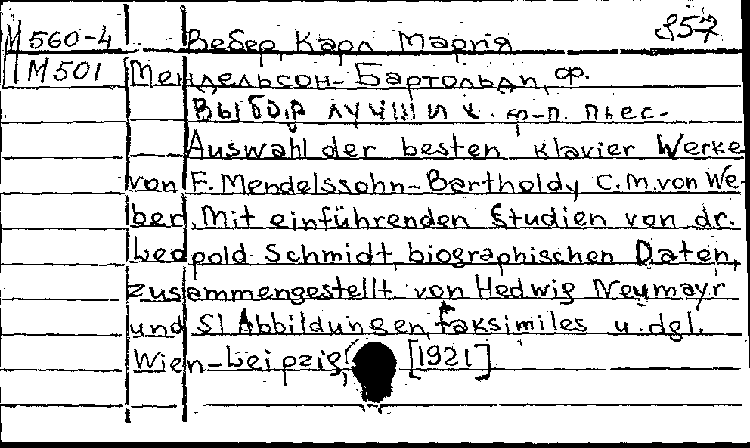 М 560-4 Вебер, Карл Мария 857
М 501 Мендельсон-Бартольди, Ф.
Выбор лучших ф-п. пьес.
Auswahl der besten Klavier Werke
von F. Mendelssohn-Bartholdy C.M. von We-
ber. Mit einführenden Studien von dr.
Leopold Schmidt, biographischen Daten,
zusammengestellt von Hedwig Neumayr
und 51 Abbildungen, Faksimiles u. dgl.
Wien-Leipzig, [1921]